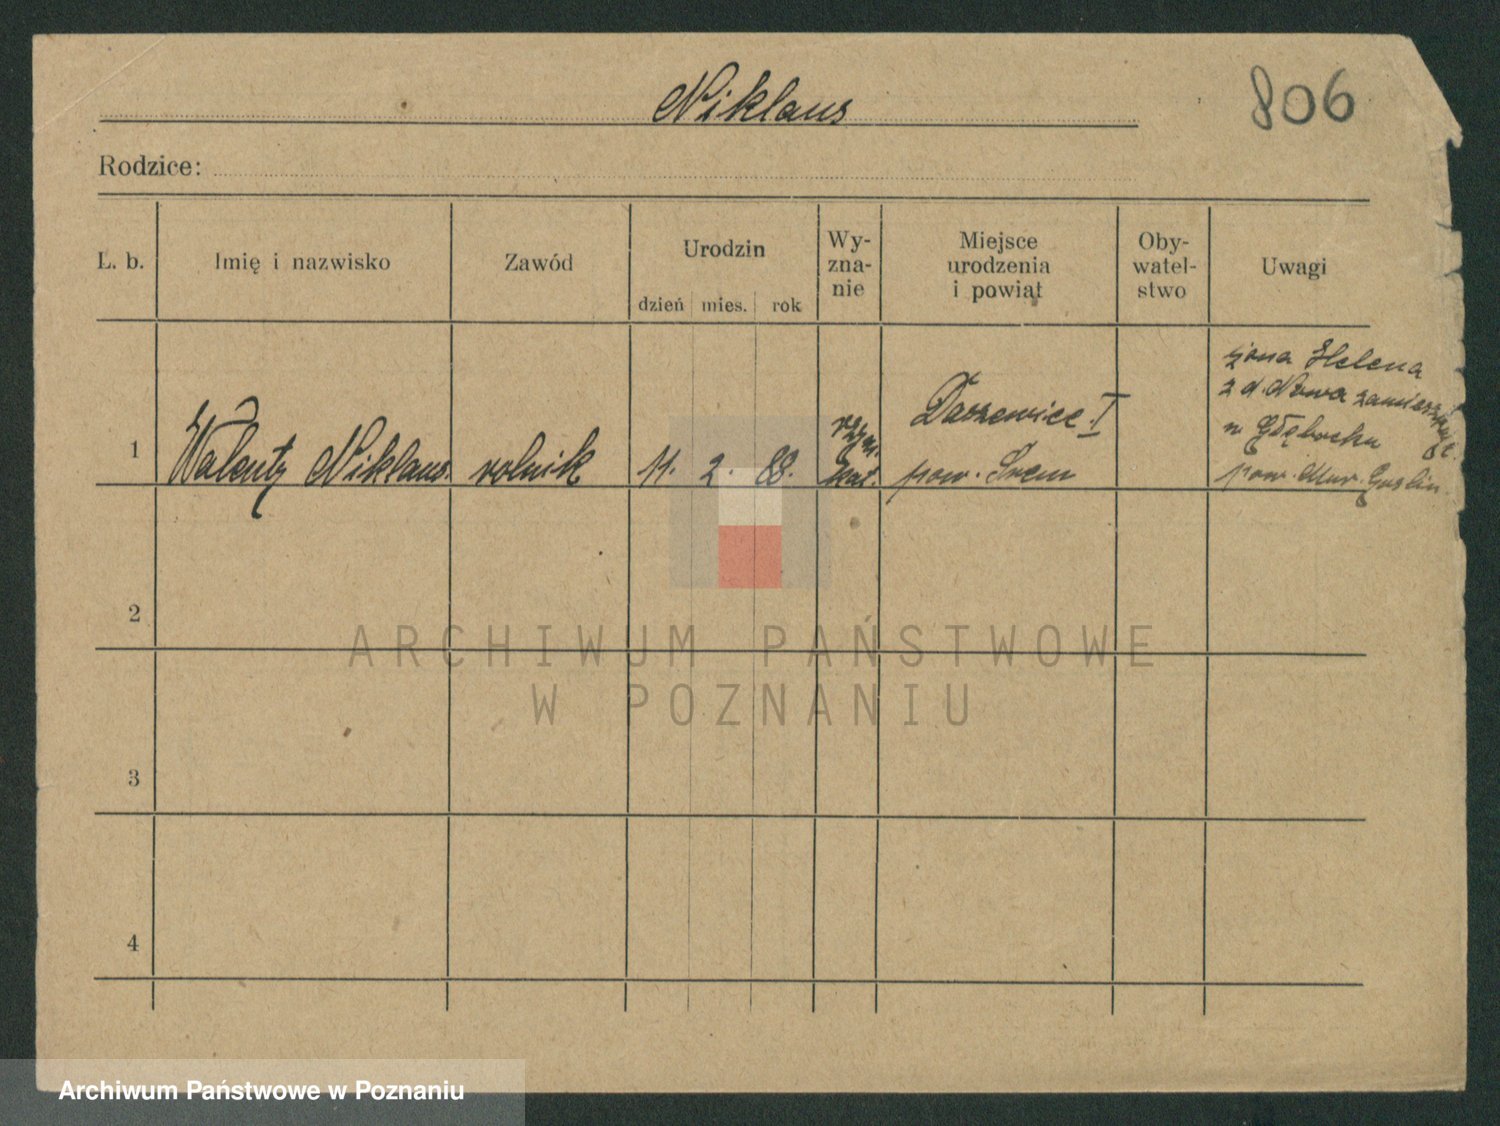 Niklaus
806
Rodzice:
L. b.
Imię i nazwisko
Zawód
Urodzin
dzień mies. rok
Wy-
zna-
nie
Miejsce
urodzenia
i powiat
Oby-
watel-
stwo
Uwagi
1
Walenty Niklaus.
rolnik
11. 2. 88.
rzym.
kat.
Daszewice I
pow. Śrem
żona Helena
z d. Nowa zamieszkuje
w Głębocku
pow. Mur. Goślin.
2
3
4
ARCHIWUM PAŃSTWOWE
W POZNANIU
Archiwum Państwowe w Poznaniu